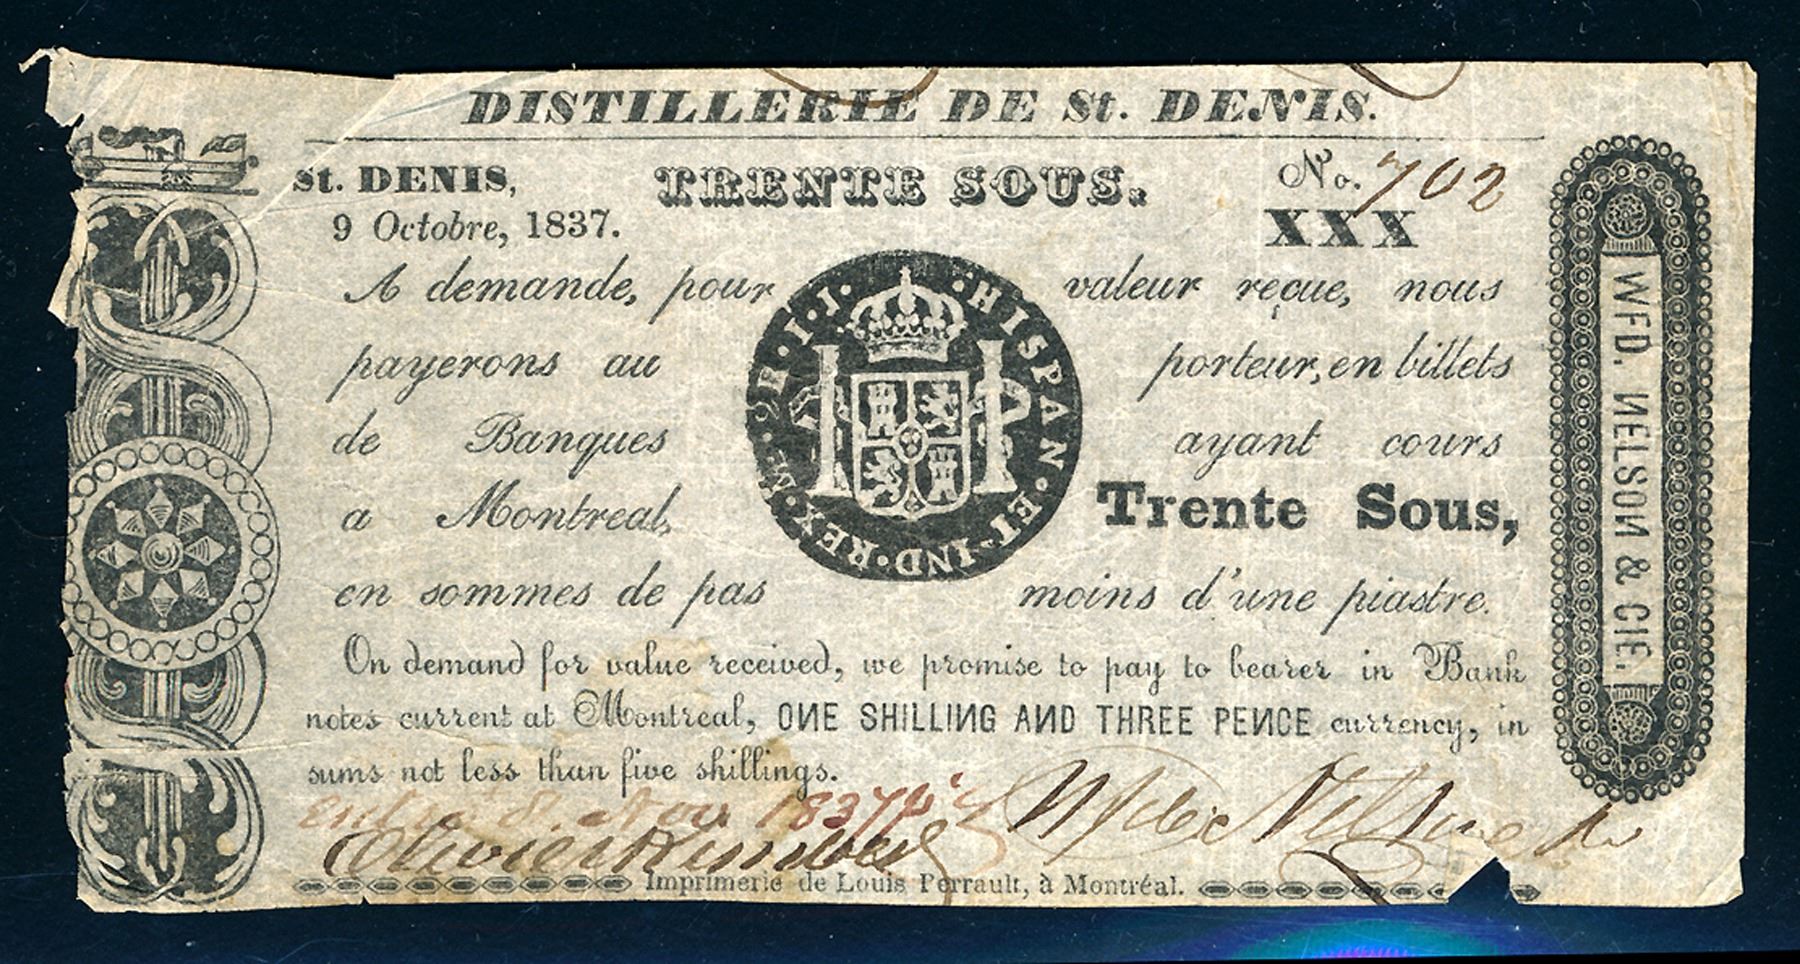 DISTILLERIE DE St. DENIS.
St. DENIS,
TRENTE SOUS.
No. 702
9 Octobre, 1837.
XXX
A demande, pour valeur reçue, nous
payerons au porteur, en billets
de Banques ayant cours
a Montreal, Trente Sous,
en sommes de pas moins d'une piastre.
· HISPAN · ET IND · REX · M · 2R · I · J ·
On demand for value received, we promise to pay to bearer in Bank
notes current at Montreal, ONE SHILLING AND THREE PENCE currency, in
sums not less than five shillings.
8. Nov. 1837
Wfd Nelson
Olivier
Imprimerie de Louis Perrault, à Montréal.
WFD. NELSON & CIE.